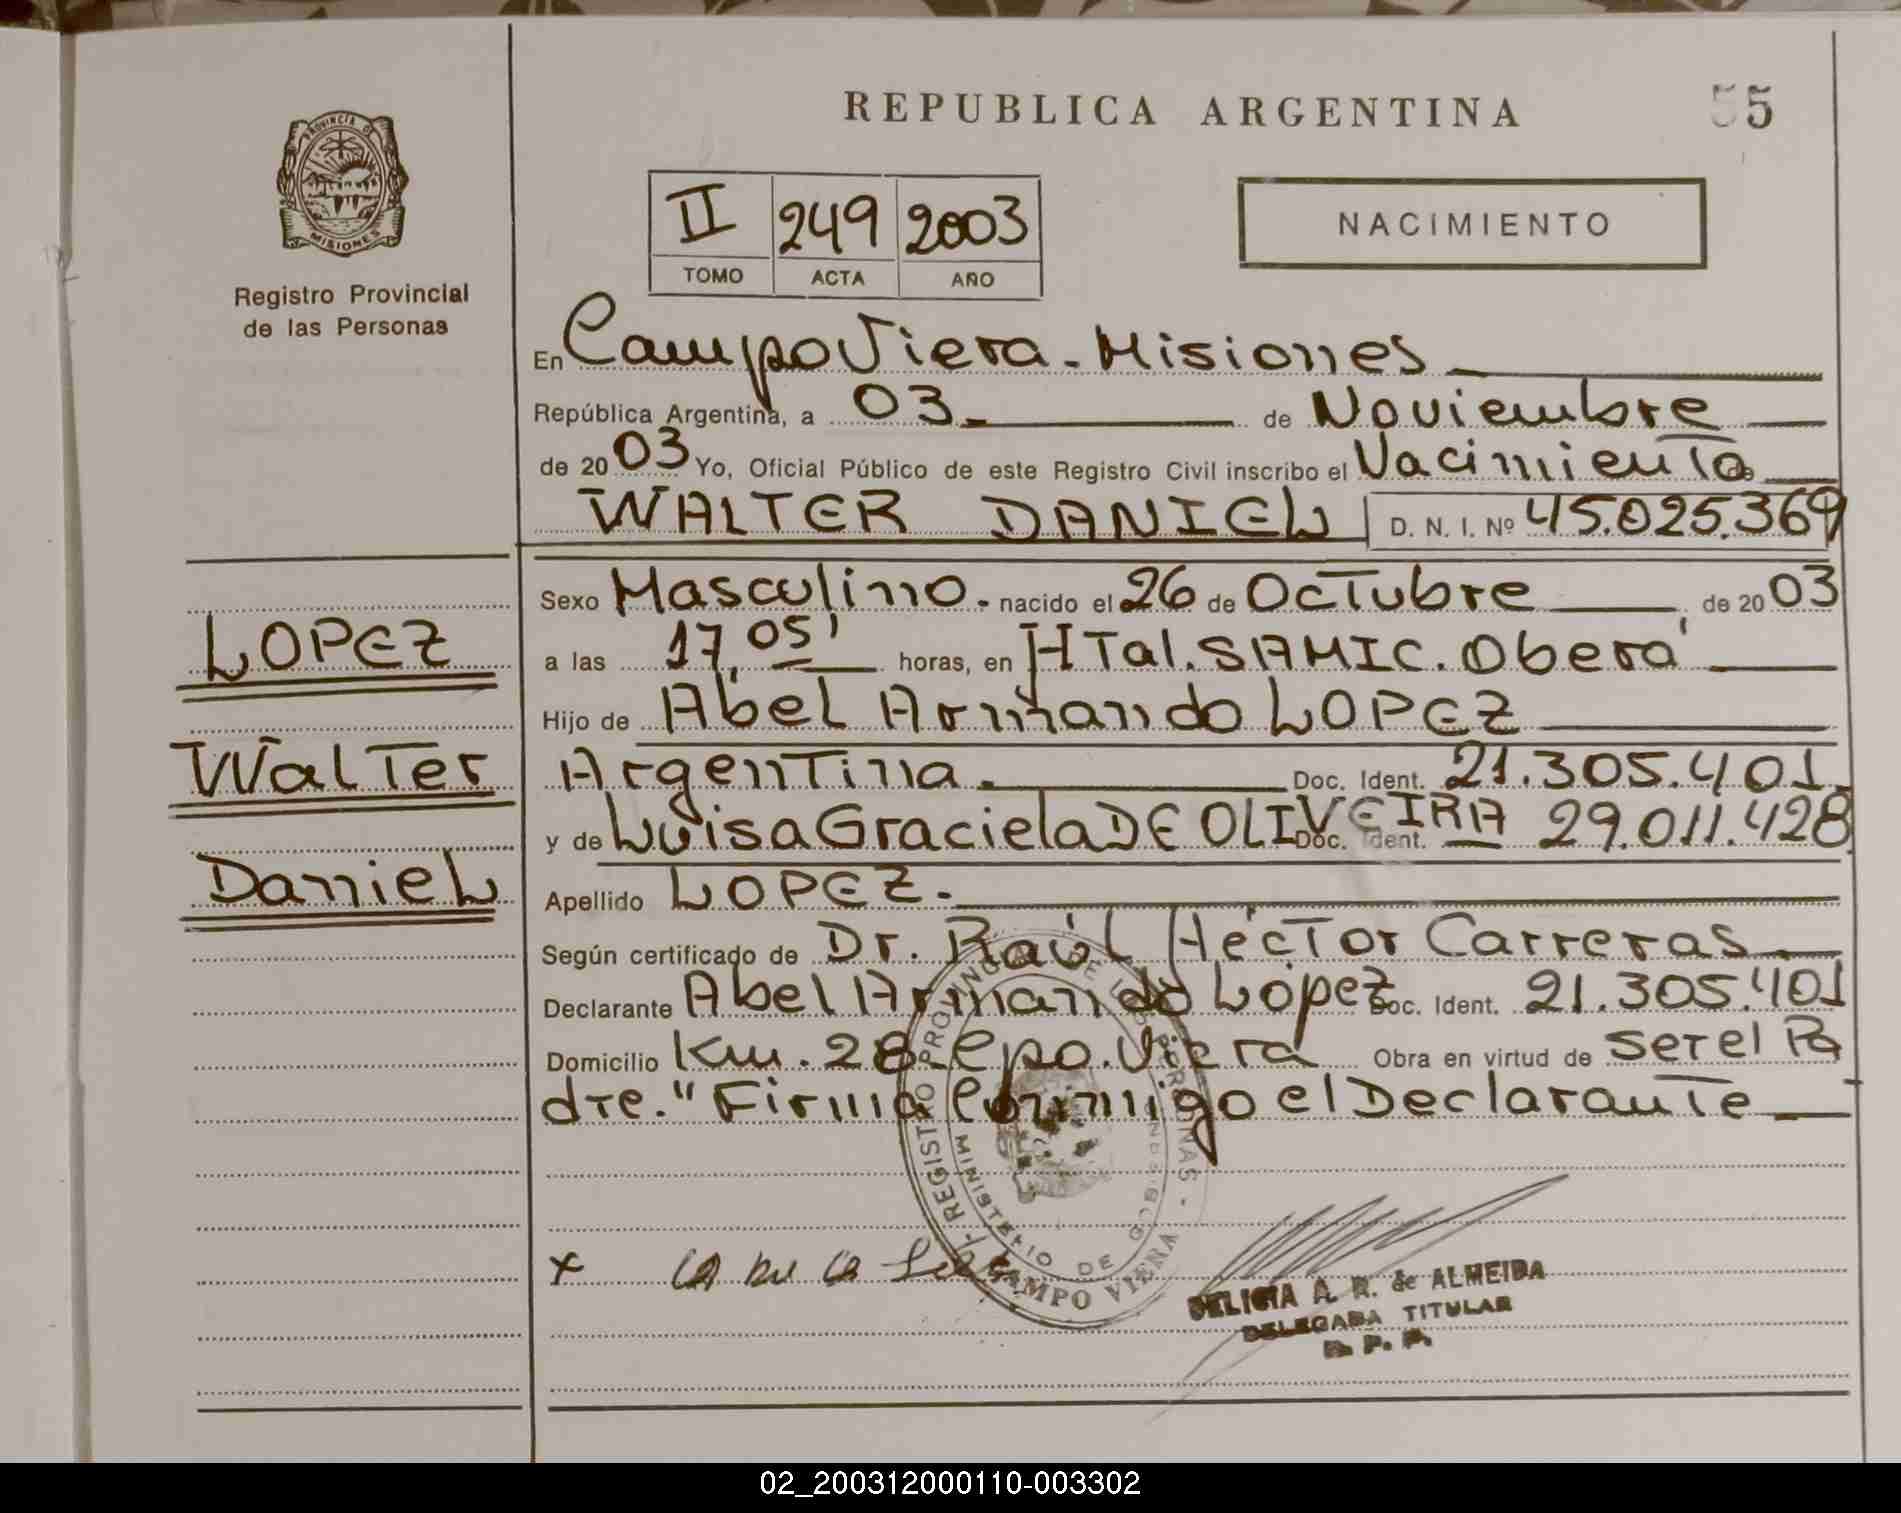 REPUBLICA ARGENTINA
55
PROVINCIA DE
MISIONES
Registro Provincial
de las Personas
II 249 2003
TOMO ACTA AÑO
NACIMIENTO
En Campo Viera - Misiones
República Argentina, a 03 de Noviembre
de 2003 Yo, Oficial Público de este Registro Civil inscribo el Nacimiento de
WALTER DANIEL D. N. I. Nº 45.025.369
Sexo Masculino. nacido el 26 de Octubre de 2003
a las 17,05' horas, en HTal. SAMIC. Oberá
Hijo de Abel Armando LOPEZ
Argentina. Doc. Ident. 21.305.401
y de Luisa Graciela DE OLIVEIRA Doc. Ident. 29.011.428
Apellido LOPEZ.
Según certificado de Dr. Raúl Héctor Carreras
Declarante Abel Armando López Doc. Ident. 21.305.401
Domicilio Km. 28 Cpo. Viera Obra en virtud de ser el Pa
dre." Firma Conmigo el Declarante
LOPEZ
Walter
Daniel
REGISTRO PROVINCIAL DE LAS PERSONAS -
MINISTERIO DE GOB.
CAMPO VIERA
x
DELICIA A. R. de ALMEIDA
DELEGADA TITULAR
R. P. P.
02_200312000110-003302